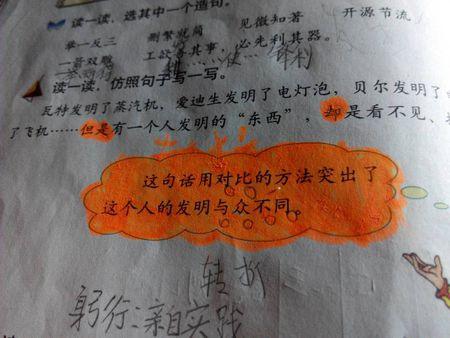 读一读，选其中一个造句。
举一反三 删繁就简 见微知著 开源节流
一箭双雕 工欲善其事，必先利其器。
锋利
读一读，仿照句子写一写。
瓦特发明了蒸汽机，爱迪生发明了电灯泡，贝尔发明了
了飞机……但是有一个人发明的“东西”，却是看不见、
这句话用对比的方法突出了
这个人的发明与众不同。
转折
躬行：亲自实践